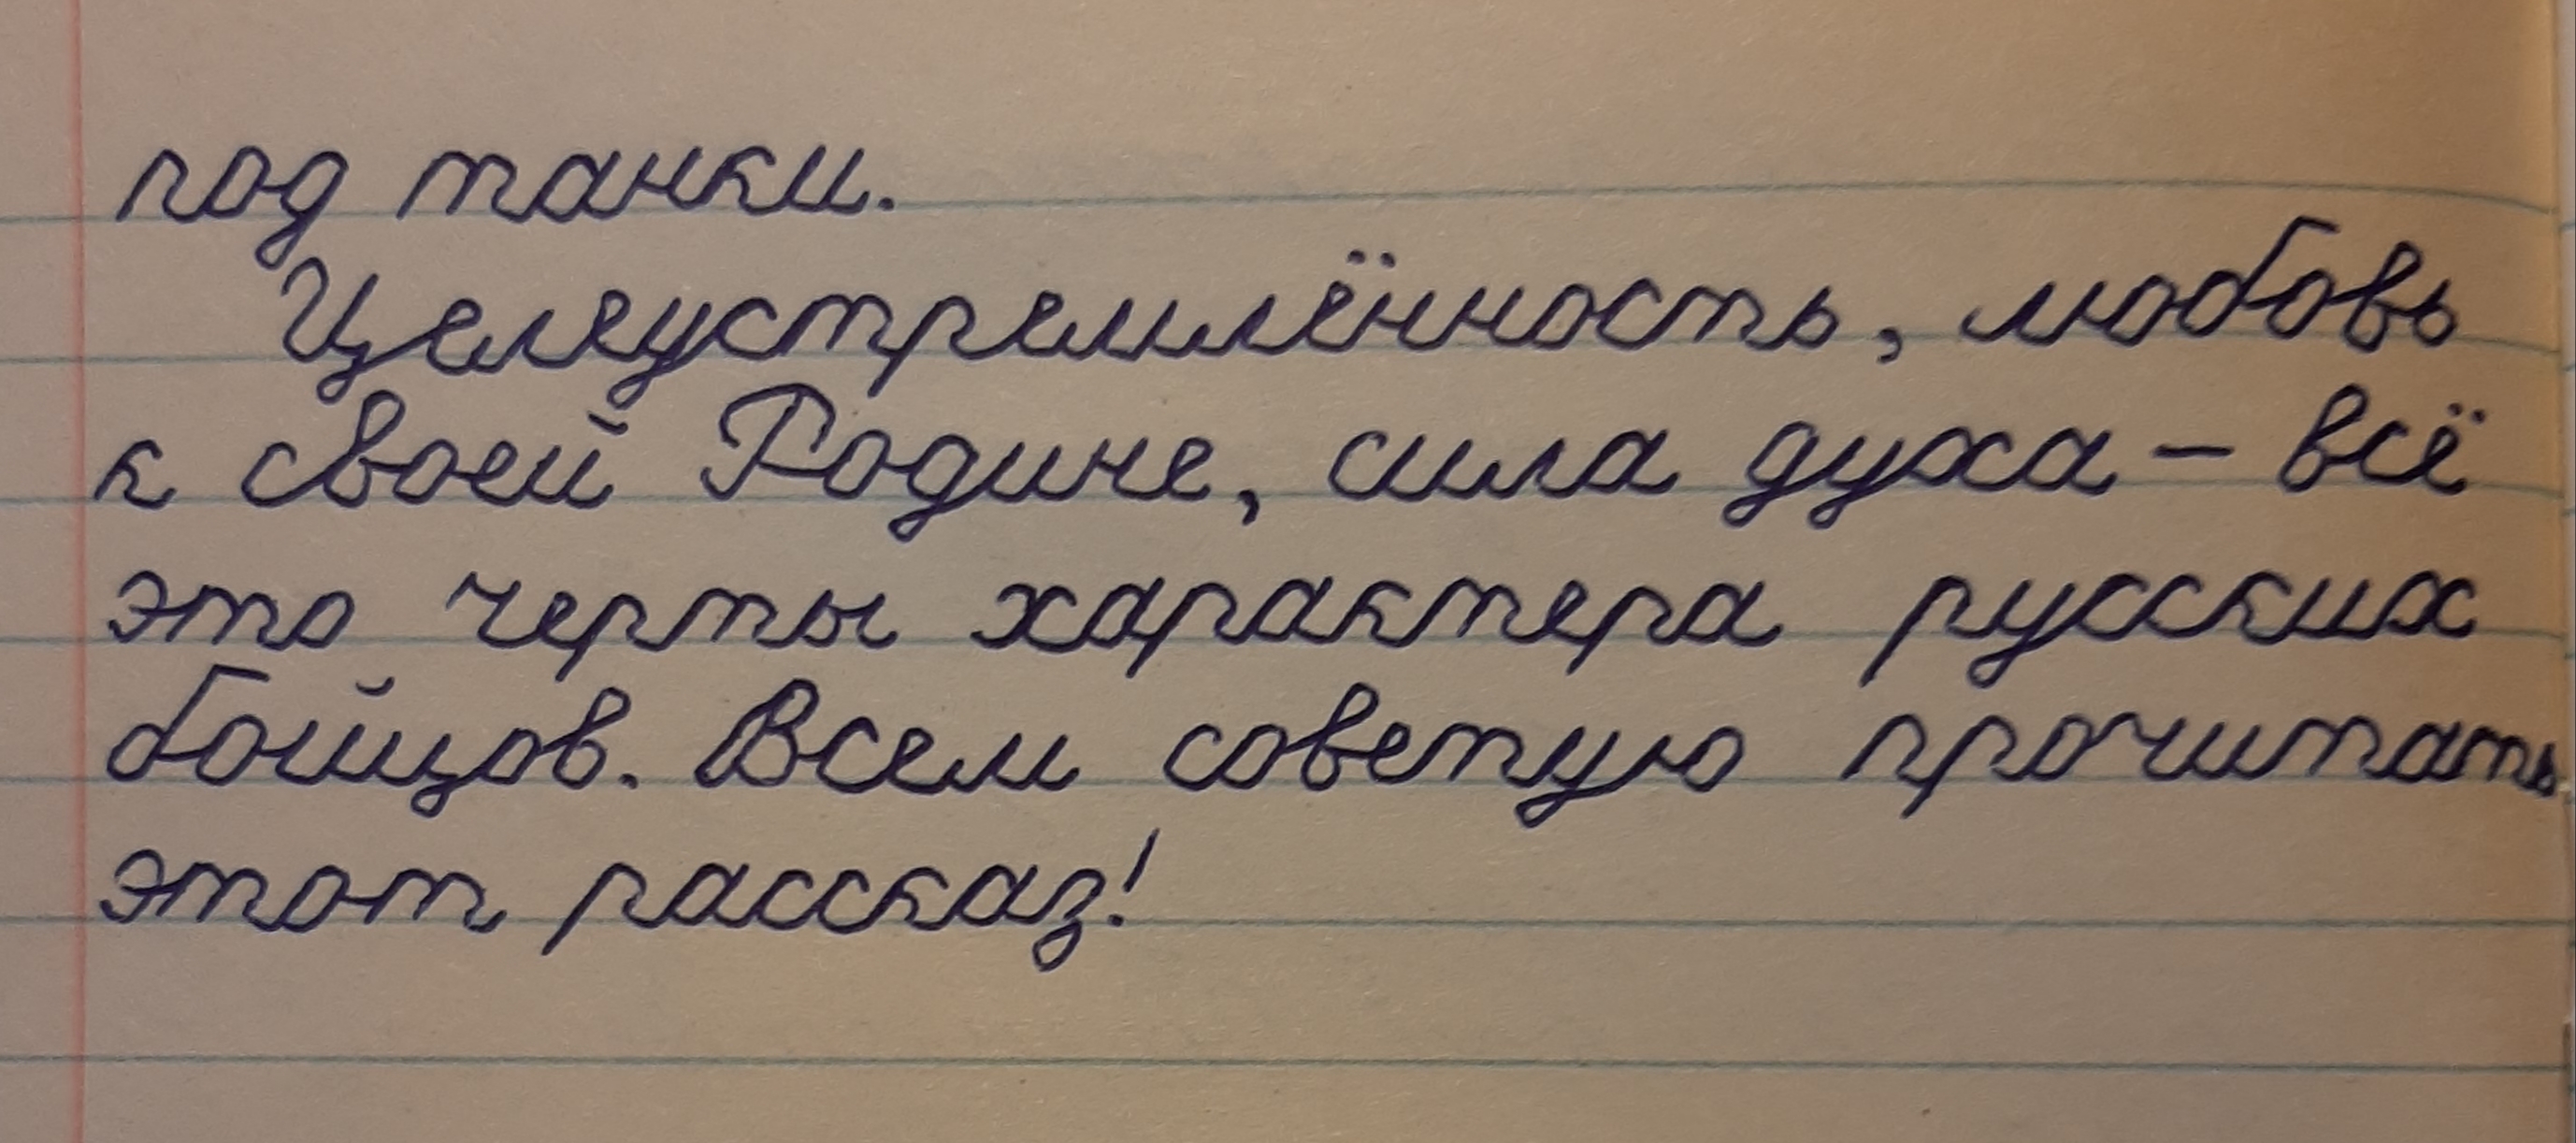 под танки.
Целеустремлённость, любовь
к своей Родине, сила духа – всё
это черты характера русских
бойцов. Всем советую прочитать
этот рассказ!